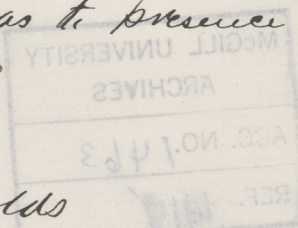 as to presence
McGILL UNIVERSITY
ARCHIVES
ACC. NO. 1463
REF.
lds